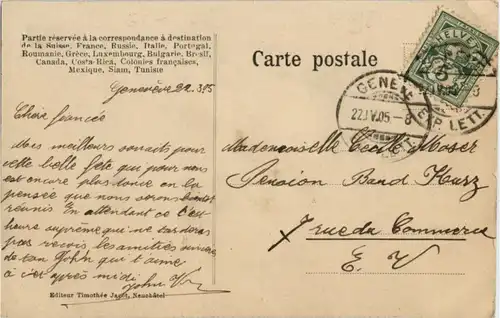 Partie réservée à la correspondance à destination
de la Suisse, France, Russie, Italie, Portugal,
Roumanie, Grèce, Luxembourg, Bulgarie, Brésil,
Canada, Costa-Rica, Colonies françaises,
Mexique, Siam, Tunisie
Carte postale
HELVETIA
5
GENÈVE
22.IV.05 - 8
EXP. LETT.
Genève 22.
Chère fiancée
Mes meilleurs souhaits pour
cette belle fête qui pour nous
est encore plus douce en la
pensée que nous serons bientôt
réunis En attendant ce
heure suprême qui ne tardera
pas reçois les amitiés
de ton John qui t'aime
à cet après midi
John
Mademoiselle Cécile Moser
Pension Band Kurz
7 rue du Commerce
E. V
Editeur Timothée Jacot, Neuchâtel